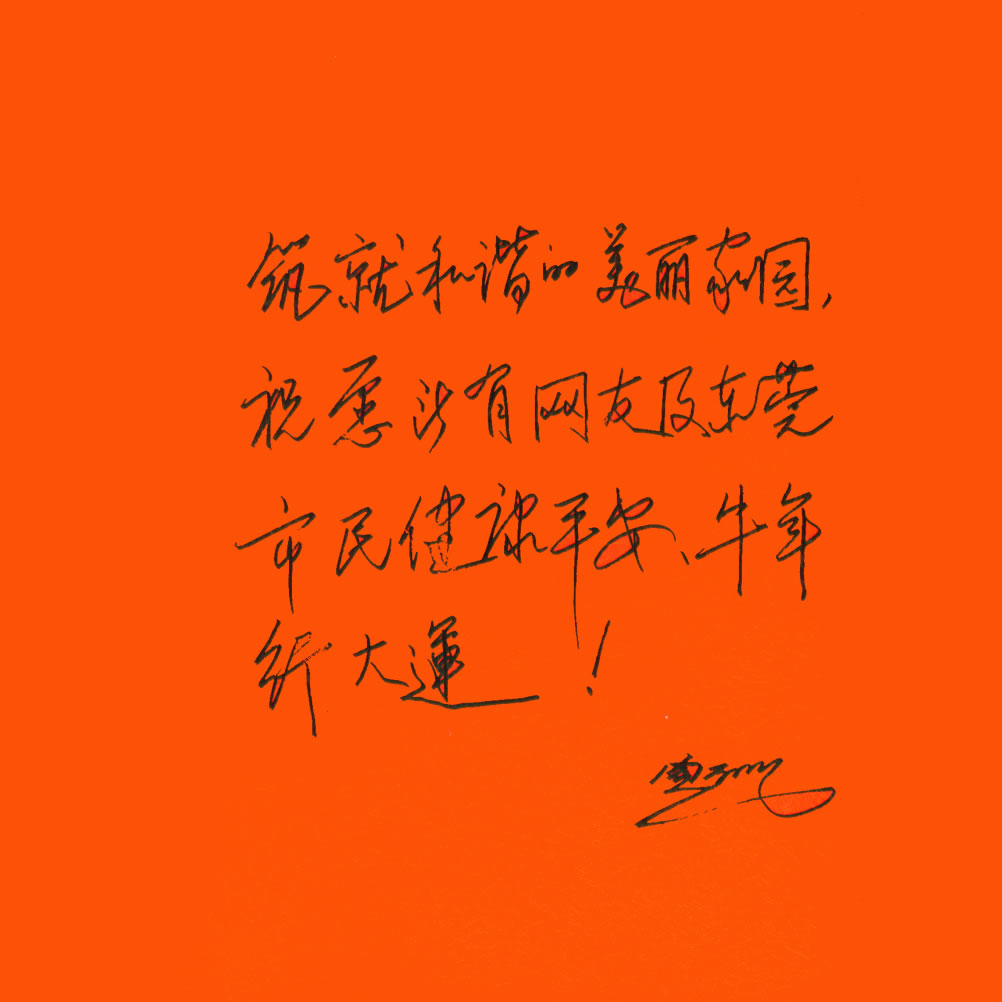 筑就和谐的美丽家园，
祝愿所有网友及东莞
市民健康平安、牛年
行大運！